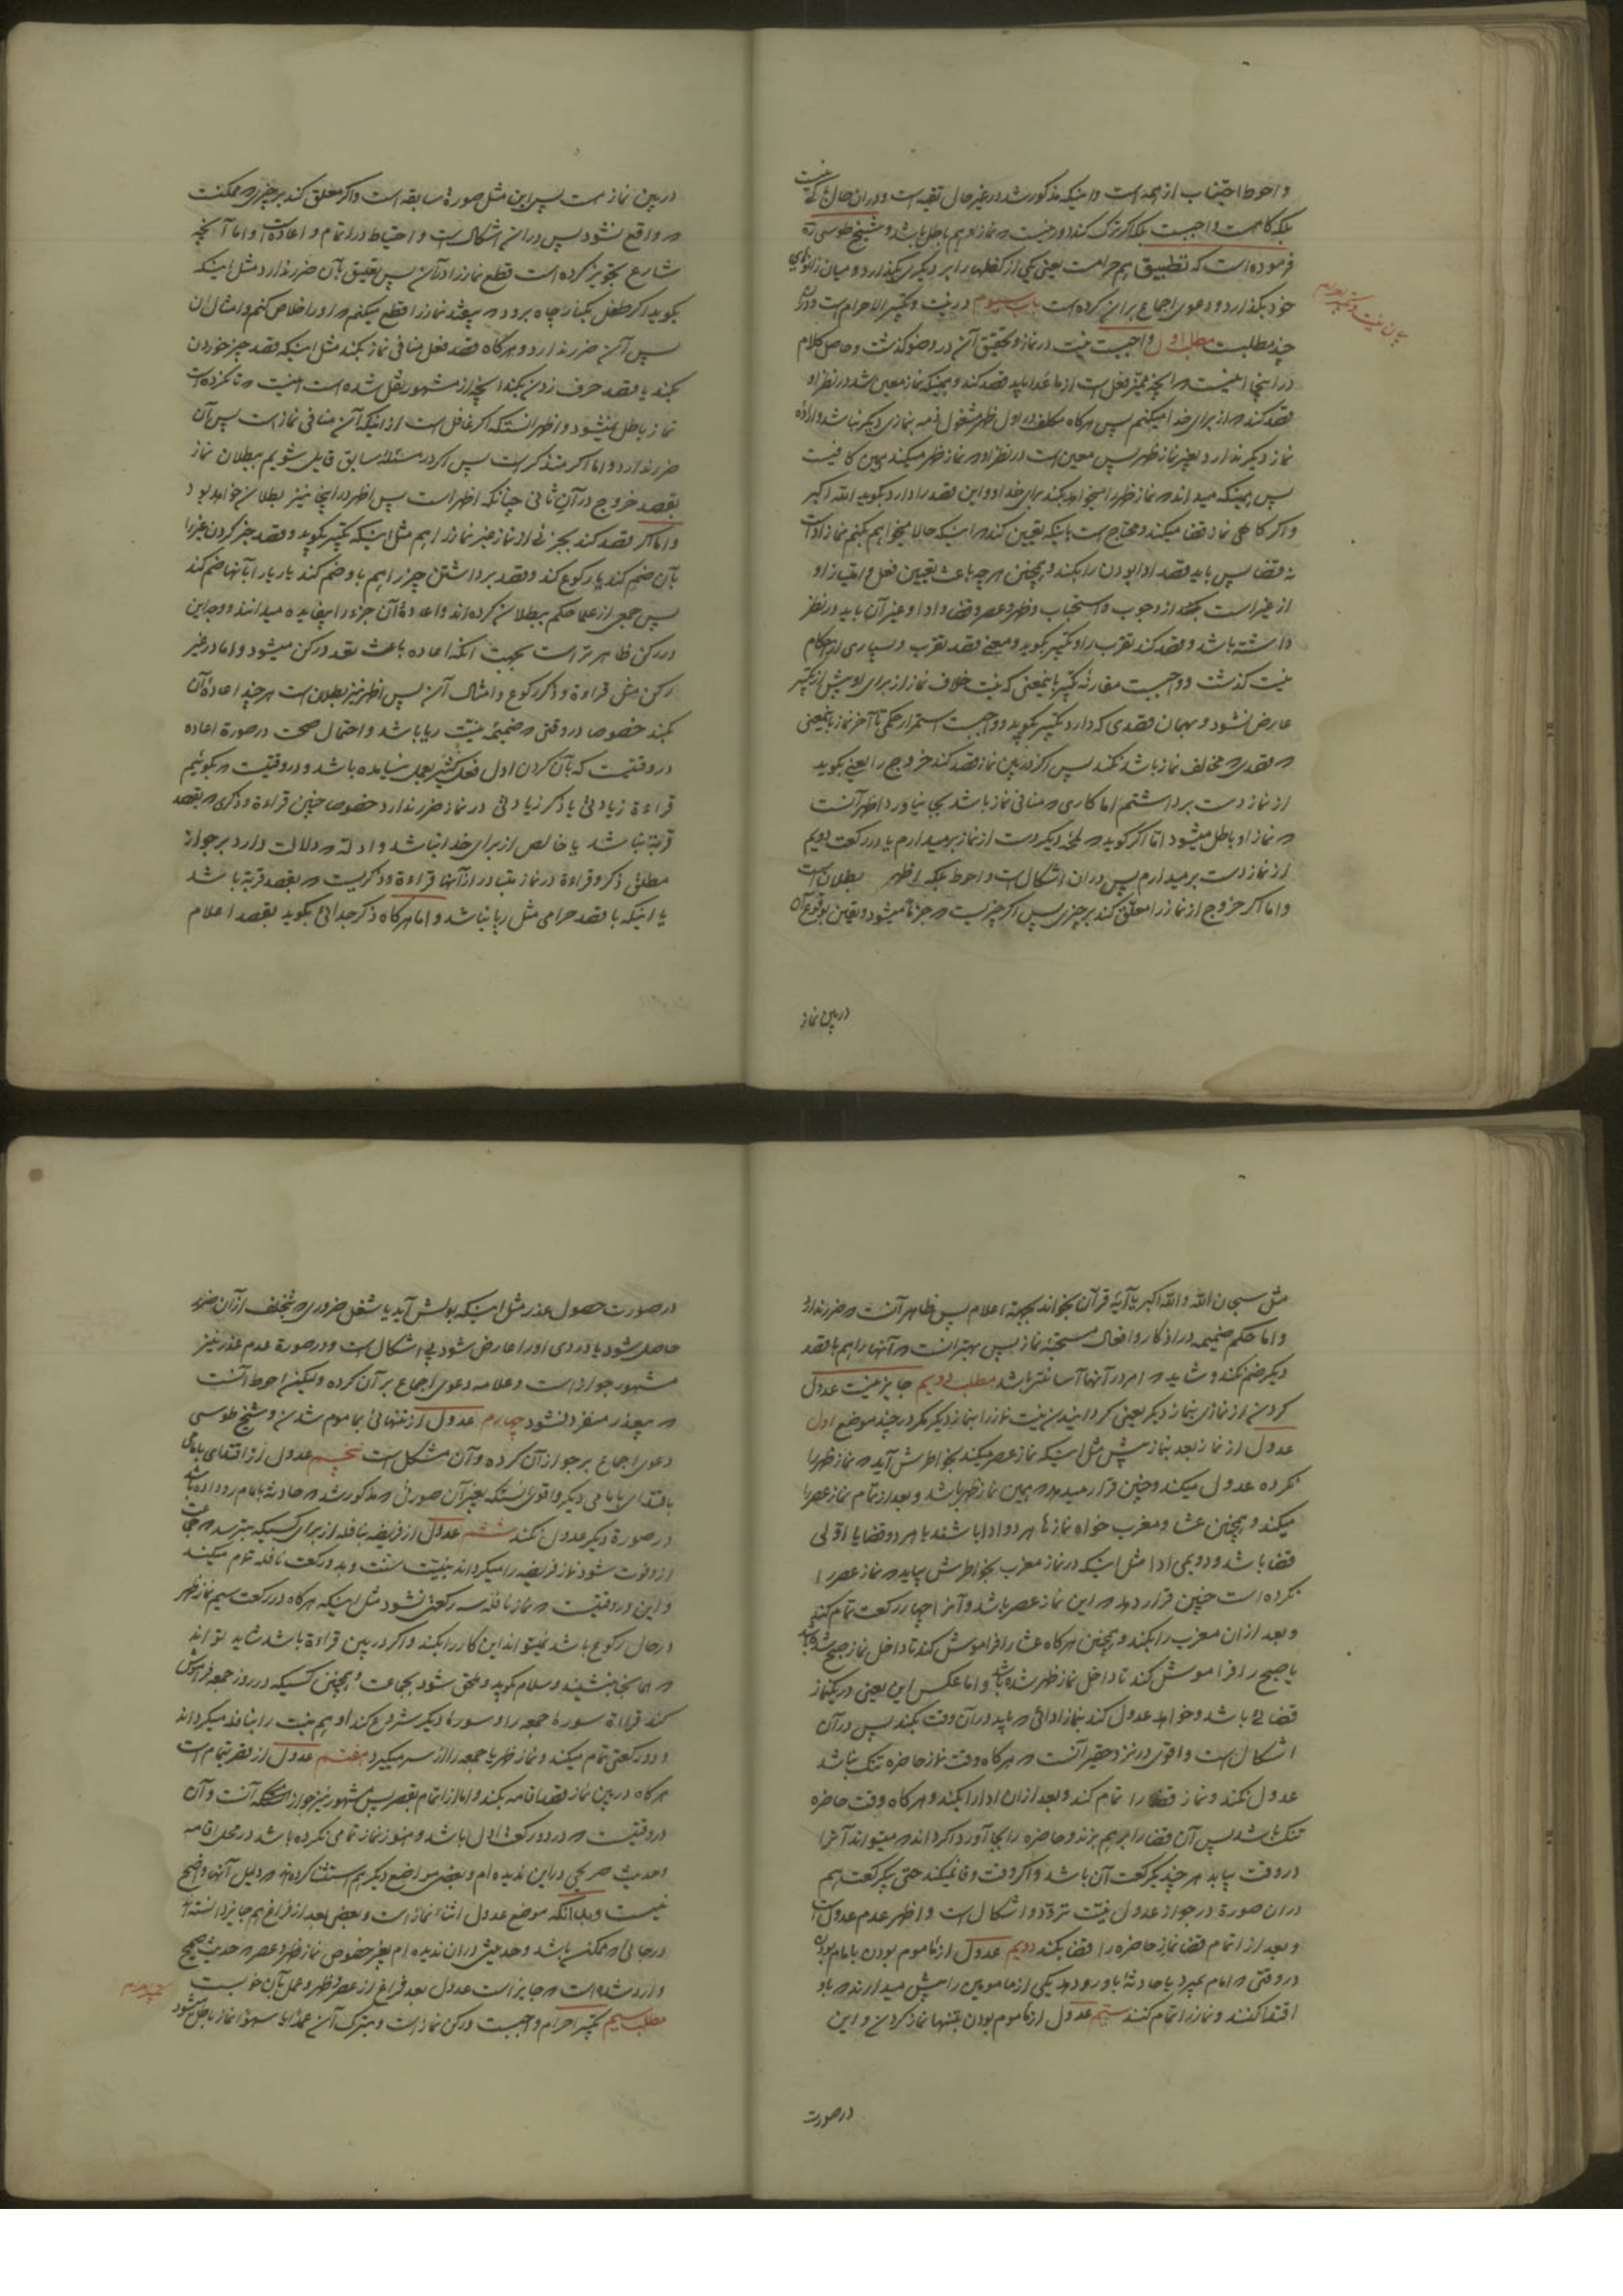 و احوط اجتناب از همه است و اینکه مذکور شد در غیر حال تقیه است و در آن حال
بلکه گاه هست واجبست بلکه اگر ترک کند در نماز او هم باطل باشد و شیخ طوسی ره
فرموده است که تطبیق هم حرامست یعنی یکی از کفها را بر دیگری بگذارد و میان زانوهای
خود بگذارد و دعوی اجماع بر این کرده است باب سیوم در نیت و تکبیر الاحرام است و در آن
چند مطلبست مطلب اول واجبست نیت در نماز و تحقیق آن در وضو گذشت و حاصل کلام
در اینجا اینست که آنچه ممیز فعل است از ماعدا باید قصد کند و همینکه نماز معین شد در نظر او
قصد کند که از برای خدا میکنم پس هر گاه مکلف در اول ظهر مشغول ذمه بنمازی دیگر نباشد و اراده
نماز دیگر ندارد بغیر نماز ظهر پس معین است در نظر او که نماز ظهر میکند همین کافیست
پس همینکه میداند که نماز ظهر را میخواهد بکند برای خدا و این قصد را دارد بگوید الله اکبر
و اگر گاهی نماز قضا میکند و محتاج است باینکه تعیین کند که اینکه حالا میخواهم بکنم نماز ادا است
نه قضا پس باید قصد ادا بودن را بکند و همچنین هر چه باعث تعیین فعل و امتیاز او
از غیر است بکند از وجوب و استحباب و ظهر و عصر و قضا و ادا و غیر آن باید در نظر
داشته باشد و قصد کند تقرب را و تکبیر بگوید و معنی قصد تقرب و بسیاری از احکام
نیت گذشت و واجبست مقارنه تکبیر باینمعنی که نیت خلاف نماز از برای او پیش از تکبیر
عارض نشود و بهمان قصدی که دارد تکبیر بگوید و واجبست استمرار حکمی تا آخر نماز باینمعنی
که قصدی که مخالف نماز باشد نکند پس اگر در بین نماز قصد کند خروج را یعنی بگوید
از نماز دست برداشتم اما کاری که منافی نماز باشد بجا نیاورد اظهر آنست
که نماز او باطل میشود اما اگر گوید که لمحه دیگر دست از نماز برمیدارم یا در رکعت دویم
از نماز دست برمیدارم پس در آن اشکال است و احوط بلکه اظهر بطلان است
و اما اگر خروج از نماز را معلق کند بر چیزی پس اگر چیزیست که جزماً میشود و یقین بوقوع آن
در بین نماز
بیان نیت و تکبیر احرام
در بین نماز هست پس این مثل صورة سابقه است و اگر معلق کند بر چیزی که ممکنست
که واقع نشود پس در این اشکال است و احتیاط در اتمام و اعاده است و اما آنچه
شارع تجویز کرده است قطع نماز را در آن پس تعلیق بآن ضرر ندارد مثل اینکه
بگوید اگر طفل بکنار چاه برود که بیفتد نماز را قطع میکنم که او را خلاص کنم و امثال آن
پس آن ضرر ندارد و هر گاه قصد فعل منافی نماز بکند مثل اینکه قصد چیز خوردن
بکند یا قصد حرف زدن بکند آنچه از مشهور نقل شده است اینست که تا نکرده است
نماز باطل نمیشود و اظهر انستکه اگر غافل است از اینکه آن منافی نماز است پس آن
ضرر ندارد و اما اگر متذکر است پس اگر در مسئله سابق قایل شویم ببطلان نماز
بقصد خروج در آن ثانی چنانکه اظهر است پس اظهر در اینجا نیز بطلان خواهد بود
و اما اگر قصد کند بجزئی از نماز غیر نماز را هم مثل اینکه تکبیر بگوید و قصد خبر کردن غیر را
بآن ضم کند یا رکوع کند و قصد برداشتن چیز را هم باو ضم کند یا ریا را بآنها ضم کند
پس جمعی از علما حکم ببطلان کرده اند و اعاده آن جزء را بیفایده میدانند و وجه این
در رکن ظاهر تر است بجهت آنکه اعاده باعث تعدد رکن میشود و اما در غیر
رکن مثل قراءة و ذکر رکوع و امثال آن پس اظهر نیز بطلان است هر چند اعاده آن
بکند خصوصا در وقتی که ضمیمه نیت ریا باشد و احتمال صحت در صورة اعاده
در وقتیست که بآن کردن اول فعل کثیر بعمل نیامده باشد و در وقتیست که بگوئیم
قراءة زیادتی یا ذکر زیادتی در نماز ضرر ندارد خصوصا چنین قراءة و ذکری که بقصد
قربة نباشد یا خالص از برای خدا نباشد و ادله که دلالت دارد بر جواز
مطلق ذکر و قراءة در نماز متبادر از آنها قراءة و ذکریست که بقصد قربة باشد
یا اینکه با قصد حرامی مثل ریا نباشد و اما هر گاه ذکر جدائی بگوید بقصد اعلام
مثل سبحان الله و الله اکبر یا آیه قرآن بخواند بجهة اعلام پس ظاهر آنست که ضرر ندارد
و اما حکم ضمیمه در اذکار و افعال مستحبه نماز پس بهتر انست که آنها را هم با قصد
دیگر ضم نکند و شاید که امر در آنها آسانتر باشد مطلب دویم جایز نیست عدول
کردن از نمازی بنماز دیگر یعنی گردانیدن نیت نماز را بنماز دیگر مگر در چند موضع اول
عدول از نماز بعد بنماز پیش مثل اینکه نماز عصر میکند بخاطرش آید که نماز ظهر را
نکرده عدول میکند و چنین قرار میدهد که همین نماز ظهر باشد و بعد از تمام نماز عصر را
میکند و همچنین عشا و مغرب خواه نمازها هر دو ادا باشند یا هر دو قضا یا اولی
قضا باشد و دویمی ادا مثل اینکه در نماز مغرب بخاطرش بیاید که نماز عصر را
نکرده است چنین قرار دهد که این نماز عصر باشد و آنرا چهار رکعت تمام کند
و بعد از آن مغرب را بکند و همچنین هر گاه عشا را فراموش کند تا داخل نماز صبح شده باشد
یا صبح را فراموش کند تا داخل نماز ظهر شده باشد و اما عکس این یعنی در یکنماز
قضائی باشد و خواهد عدول کند بنماز ادائی که باید در آن وقت بکند پس در آن
اشکال است و اقوی در نزد حقیر آنست که هر گاه وقت نماز حاضره تنگ نباشد
عدول نکند و نماز قضا را تمام کند و بعد از ان ادا را بکند و هر گاه وقت حاضره
تنگ باشد پس آن قضا را برهم بزند و حاضره را بجا آورد اگر داند که میتواند آنرا
در وقت بیابد هر چند یکرکعت آن باشد و اگر وقت وفا نمیکند حتی یکرکعت هم
در ان صورة در جواز عدول نیت تردد و اشکال است و اظهر عدم عدول است
و بعد از اتمام قضا نماز حاضره را قضا بکند دویم عدول از مأموم بودن بامام بودن
در وقتی که امام بمیرد یا حادثه باو رو دهد یکی از مأمومین را پیش میدارند که باو
اقتدا کنند و نماز را تمام کنند سیم عدول از مأموم بودن بتنها نماز کردن و این
در صورت
در صورت حصول عذر مثل اینکه بولش آید یا شغل ضروری که بتخلف از آن ضرر
حاصل شود یا دردی او را عارض شود بی اشکال است و در صورة عدم عذر نیز
مشهور جواز است و علامه دعوی اجماع بر آن کرده و لیکن احوط آنست
که بیعذر منفرد نشود چهارم عدول از تنهائی بمأموم شدن و شیخ طوسی
دعوی اجماع بر جواز آن کرده و آن مشکل است پنجم عدول از اقتدای بامامی
باقتدای بامامی دیگر و اقوی انستکه بغیر آن صورتی که مذکور شد که حادثه بامام رو داده باشد
در صورة دیگر عدول نکند ششم عدول از فریضه بنافله از برای کسیکه بترسد که جماعت
ازو فوت شود نماز فریضه را میگرداند بنیت سنت و بدو رکعت نافله تمام میکند
و این در وقتیست که نماز نافله سه رکعتی نشود مثل اینکه هر گاه در رکعت سیم نماز ظهر
در حال رکوع باشد نمیتواند این کار را بکند و اگر در بین قراءة باشد شاید تواند
که همانجا بنشیند و سلام بگوید و ملحق شود بجماعت و همچنین کسیکه در روز جمعه فراموش
کند قراءة سورة جمعه را و سورة دیگر شروع کند او هم نیت را بنافله میگرداند
و دو رکعتی تمام میکند و نماز ظهر یا جمعه را از سر میگیرد هفتم عدول از قصر بتمام است
هر گاه در بین نماز قصد اقامه بکند و اما از اتمام بقصر پس مشهور نیز جواز آنست و آن
در وقتیست که در دو رکعت اول باشد و هنوز نماز تمامی نکرده باشد در محل اقامه
و حدیث صریحی در این ندیده ام و بعضی مواضع دیگر هم استثنا کرده اند که دلیل آنها واضح
نیست و بدانکه موضع عدول اثناء نماز است و بعضی بعد از فراغ هم جایز دانسته اند
در جائی که ممکن باشد و حدیثی در ان ندیده ام بغیر خصوص نماز ظهر و عصر که حدیث صحیح
وارد شده است که جایز است عدول بعد فراغ از عصر بظهر و عمل بآن خوبست
مطلب سیم تکبیر احرام واجبست و رکن نماز است و بترک آن عمداً یا سهواً نماز باطل میشود
تکبیر احرام